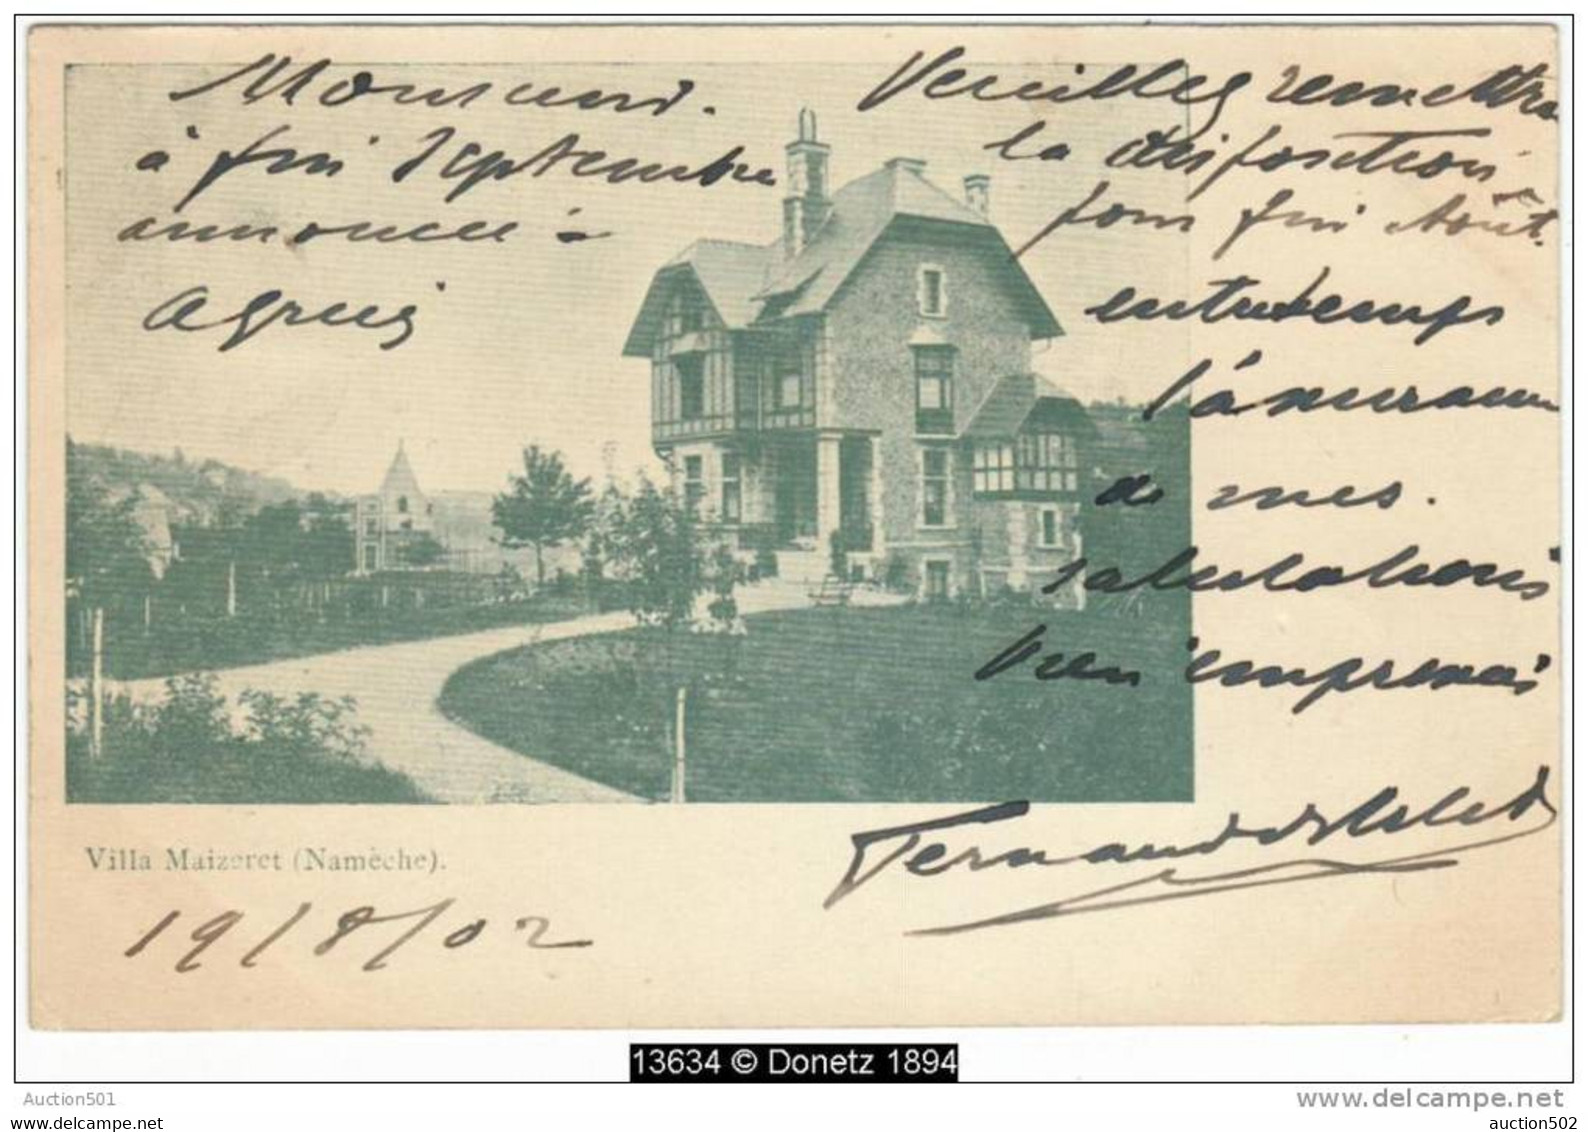 Monsieur.
Veuillez remettre
la disposition
à fin Septembre
pour fin Août.
annoncée à
entretemps
Agréez
l'assurance
de mes.
salutations
bien empressées
Fernand
Villa Maizeret (Namèche).
19/8/02
13634 © Donetz 1894
Auction501
www.delcampe.net
auction502
auction502